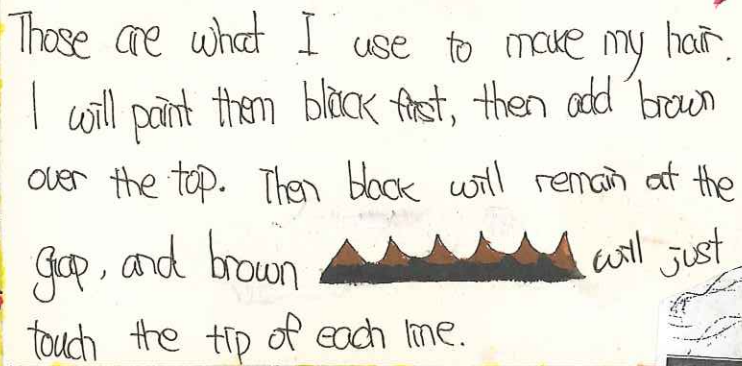 Those are what I use to make my hair.
I will paint them black first, then add brown
over the top. Then black will remain at the
gap, and brown will just
touch the tip of each line.